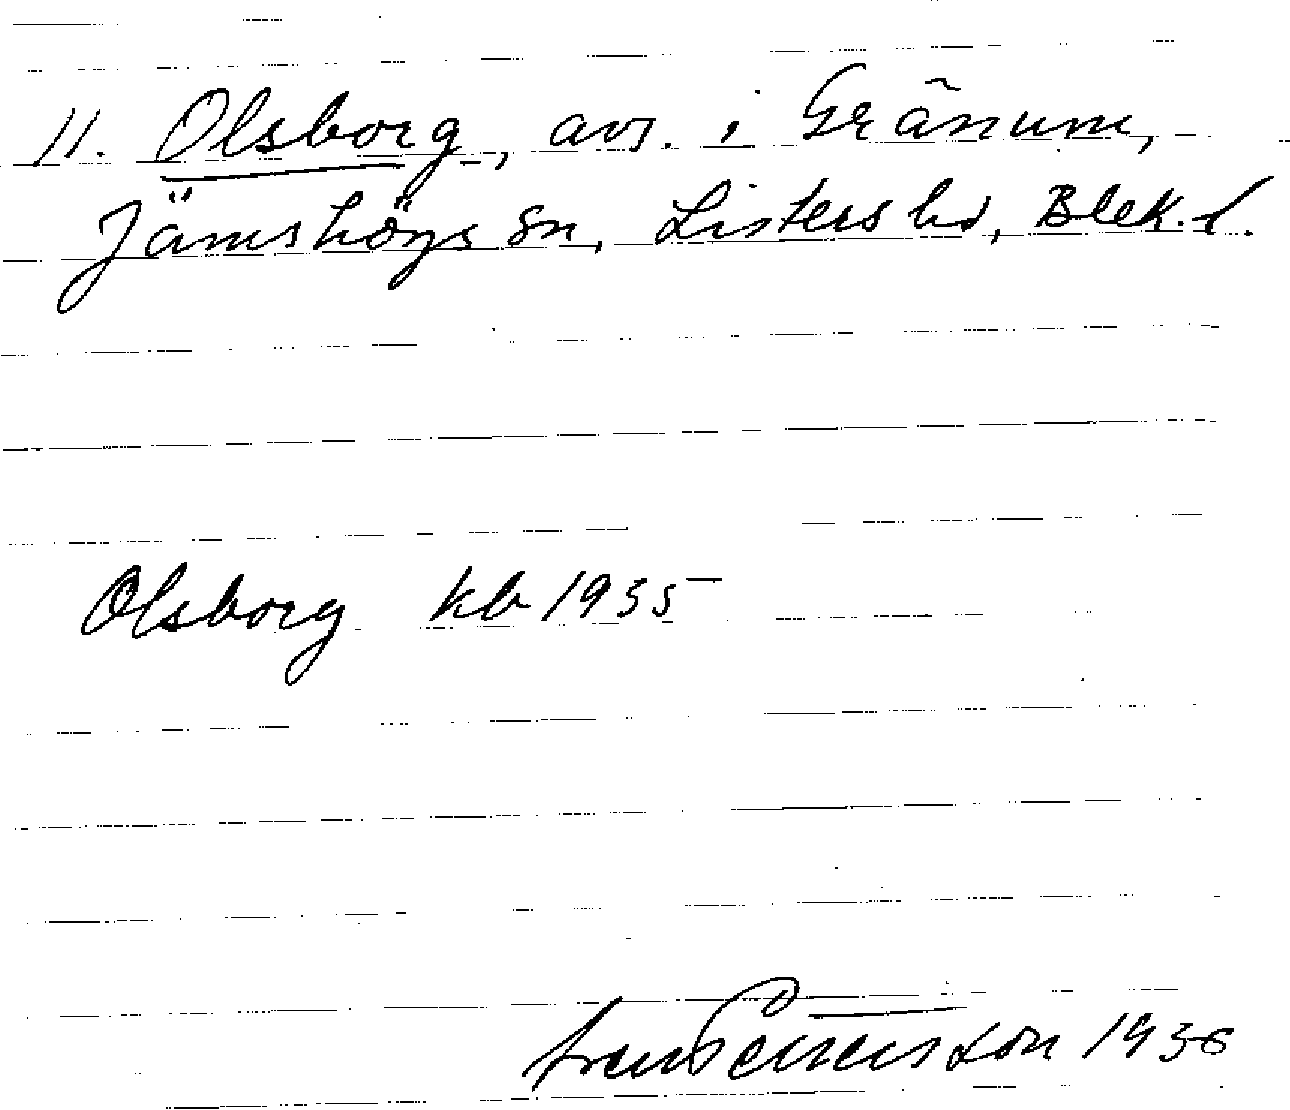 11. Olsborg, avs. i Gränum,
Jämshögs sn, Listers hd, Blek. l.
Olsborg kb 1935
Pettersson 1936